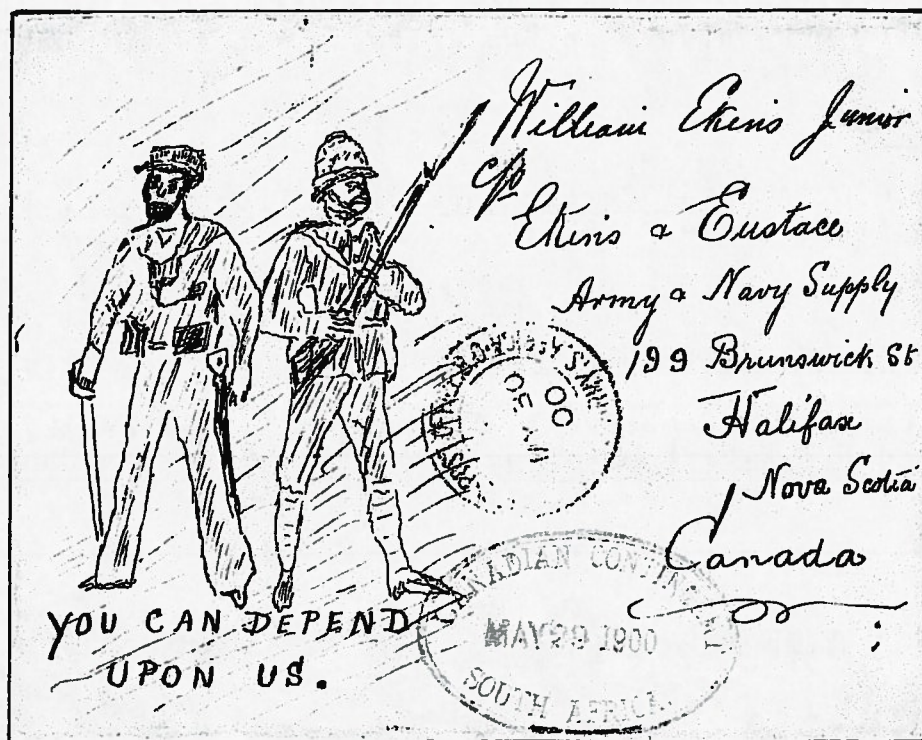 William Ekins Junior
c/o
Ekins & Eustace
Army & Navy Supply
199 Brunswick St
Halifax
Nova Scotia
Canada
YOU CAN DEPEND
UPON US.
CANADIAN
MAY 29 1900
SOUTH AFRICA
00
30